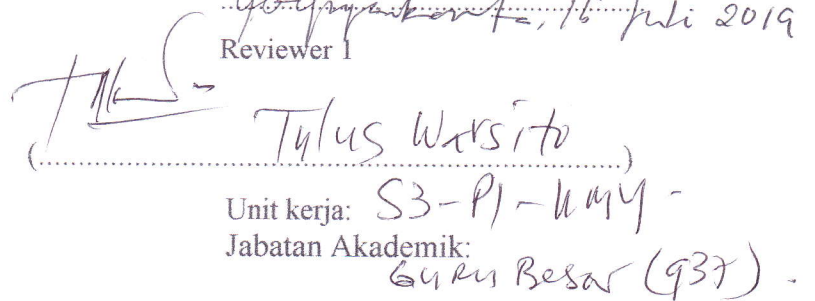 Yogyakarta, 16 Juli 2019
Reviewer 1
Tulus Warsito
(..........................................................................)
Unit kerja: S3-PI-UMY-
Jabatan Akademik:
Guru Besar (937).